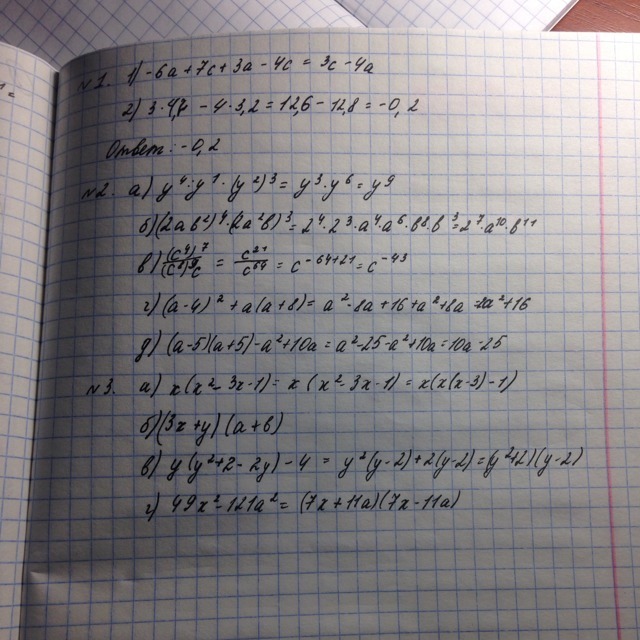 №1. 1) -6a + 7c + 3a - 4c = 3c - 4a
2) 3 · 4,2 - 4 · 3,2 = 12,6 - 12,8 = -0,2
Ответ: -0,2
№2. а) y⁴ : y¹ · (y²)³ = y³ · y⁶ = y⁹
б) (2ab²)⁴ · (2a²b)³ = 2⁴ · 2³ · a⁴ · a⁶ · b⁸ · b³ = 2⁷ · a¹⁰ · b¹¹
в) = c²¹/c⁶⁴ = c⁻⁶⁴⁺²¹ = c⁻⁴³
г) (a-4)² + a(a+8) = a² - 8a + 16 + a² + 8a = 2a² + 16
д) (a-5)(a+5) - a² + 10a = a² - 25 - a² + 10a = 10a - 25
№3. а) x(x² - 3x - 1) = x(x² - 3x - 1) = x(x(x-3) - 1)
б) (3x+y)(a+b)
в) y(y² + 2 - 2y) - 4 = y²(y-2) + 2(y-2) = (y²+2)(y-2)
г) 49x² - 121a² = (7x + 11a)(7x - 11a)